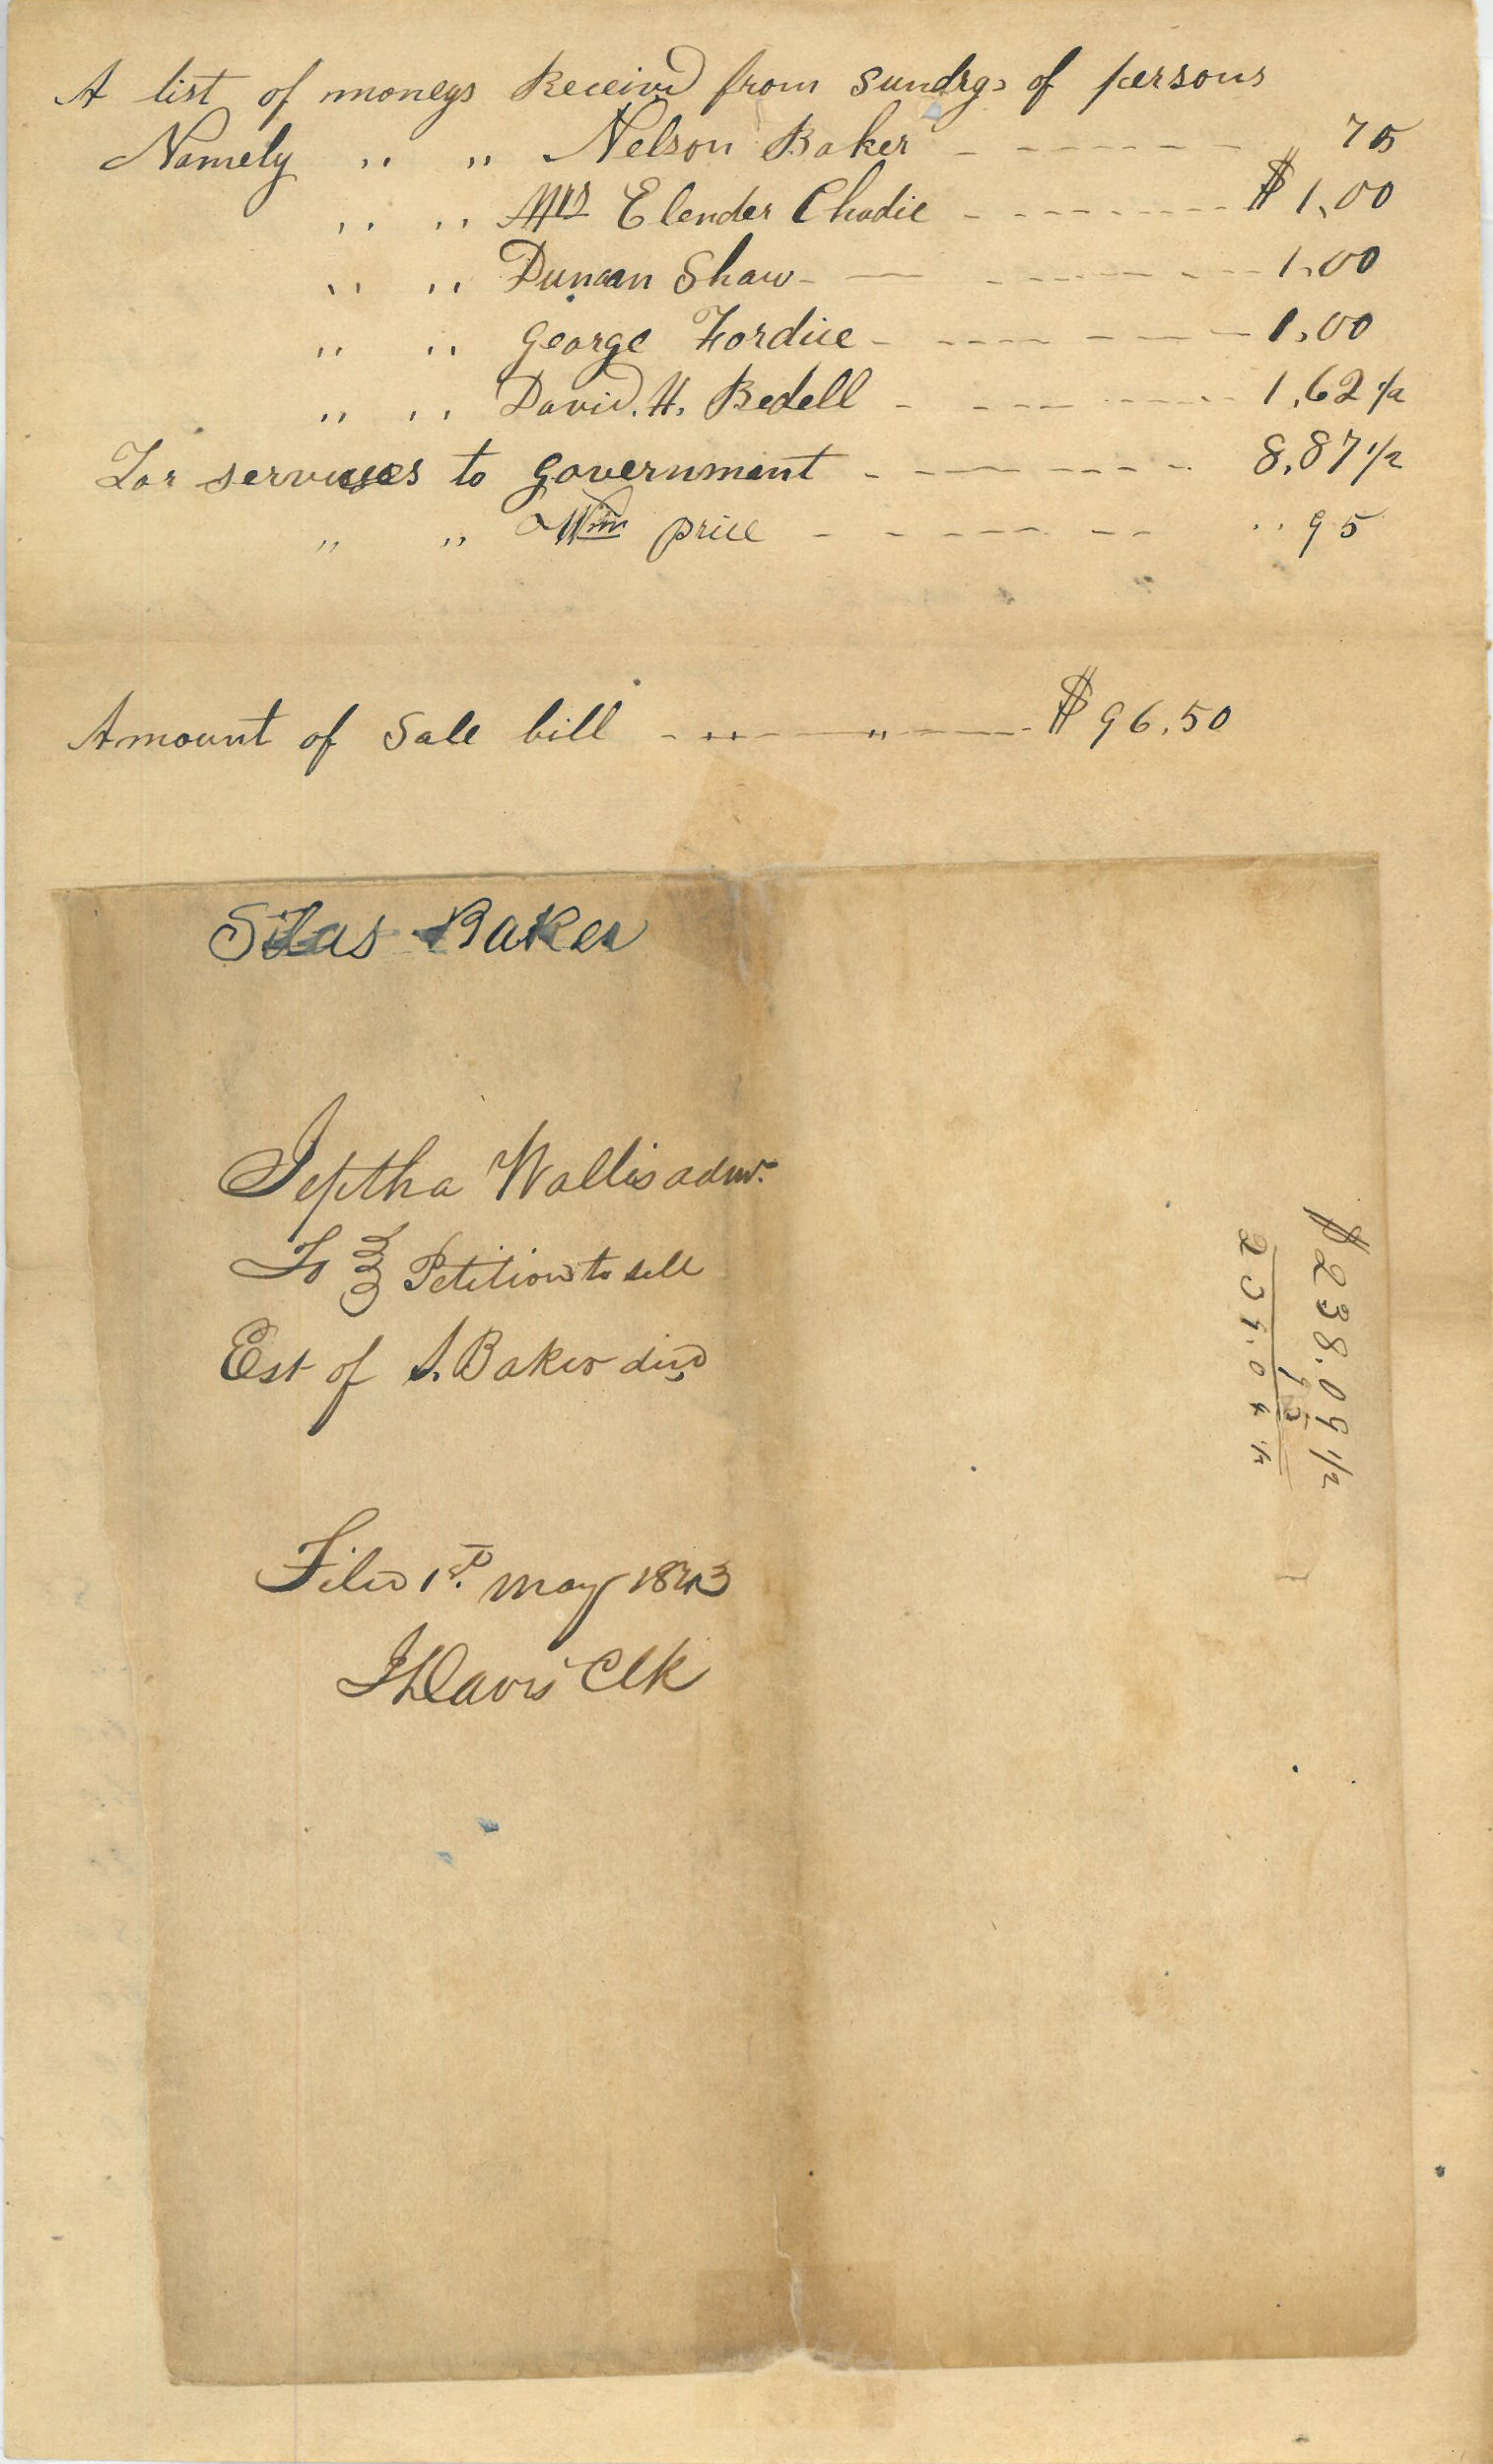 A list of moneys Receivd from Sundrys of persons
Namely " " Nelson Baker - - - - - - 75
" " Mrs Elender Chadic - - - - - - $1,00
" " Duncan Shaw - - - - - - 1,00
" " George Fordice - - - - - - 1,00
" " David. H. Bedell - - - - - - 1,62 1/2
For services to government - - - - - - 8,87 1/2
" " Wm price - - - - - - " 95
Amount of Sale bill - " - " - $96.50
Silas Baker
Jeptha Wallis admr.
To Petition to sell
Est of S. Baker decd
Filed 1st. May 1843
J Davis Clk
$238.09 1/2
95